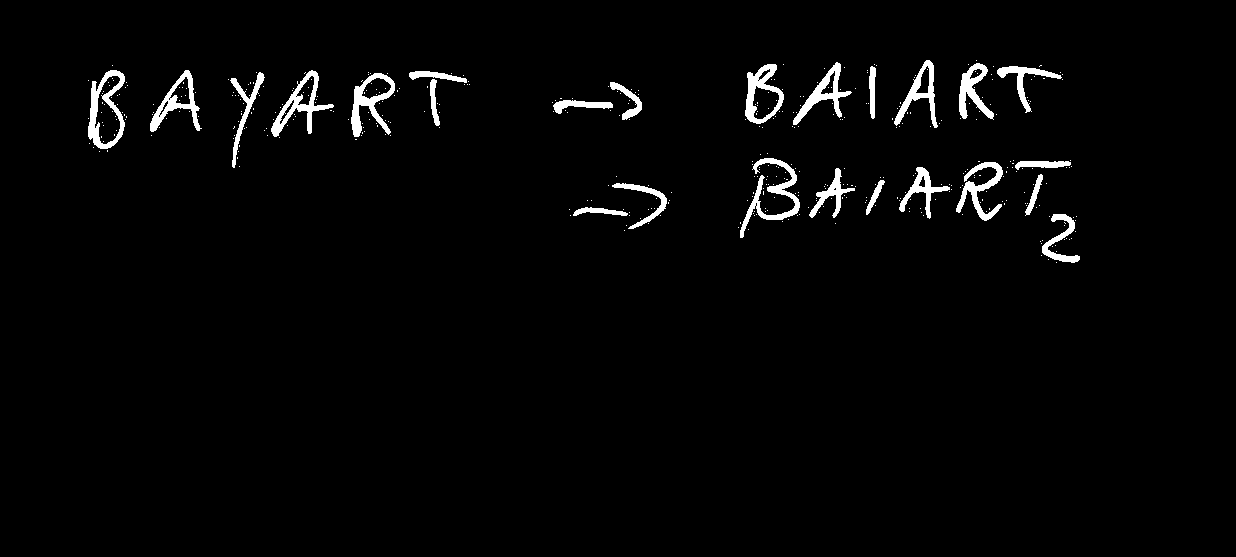 BAYART → BAIART
→ BAIART2